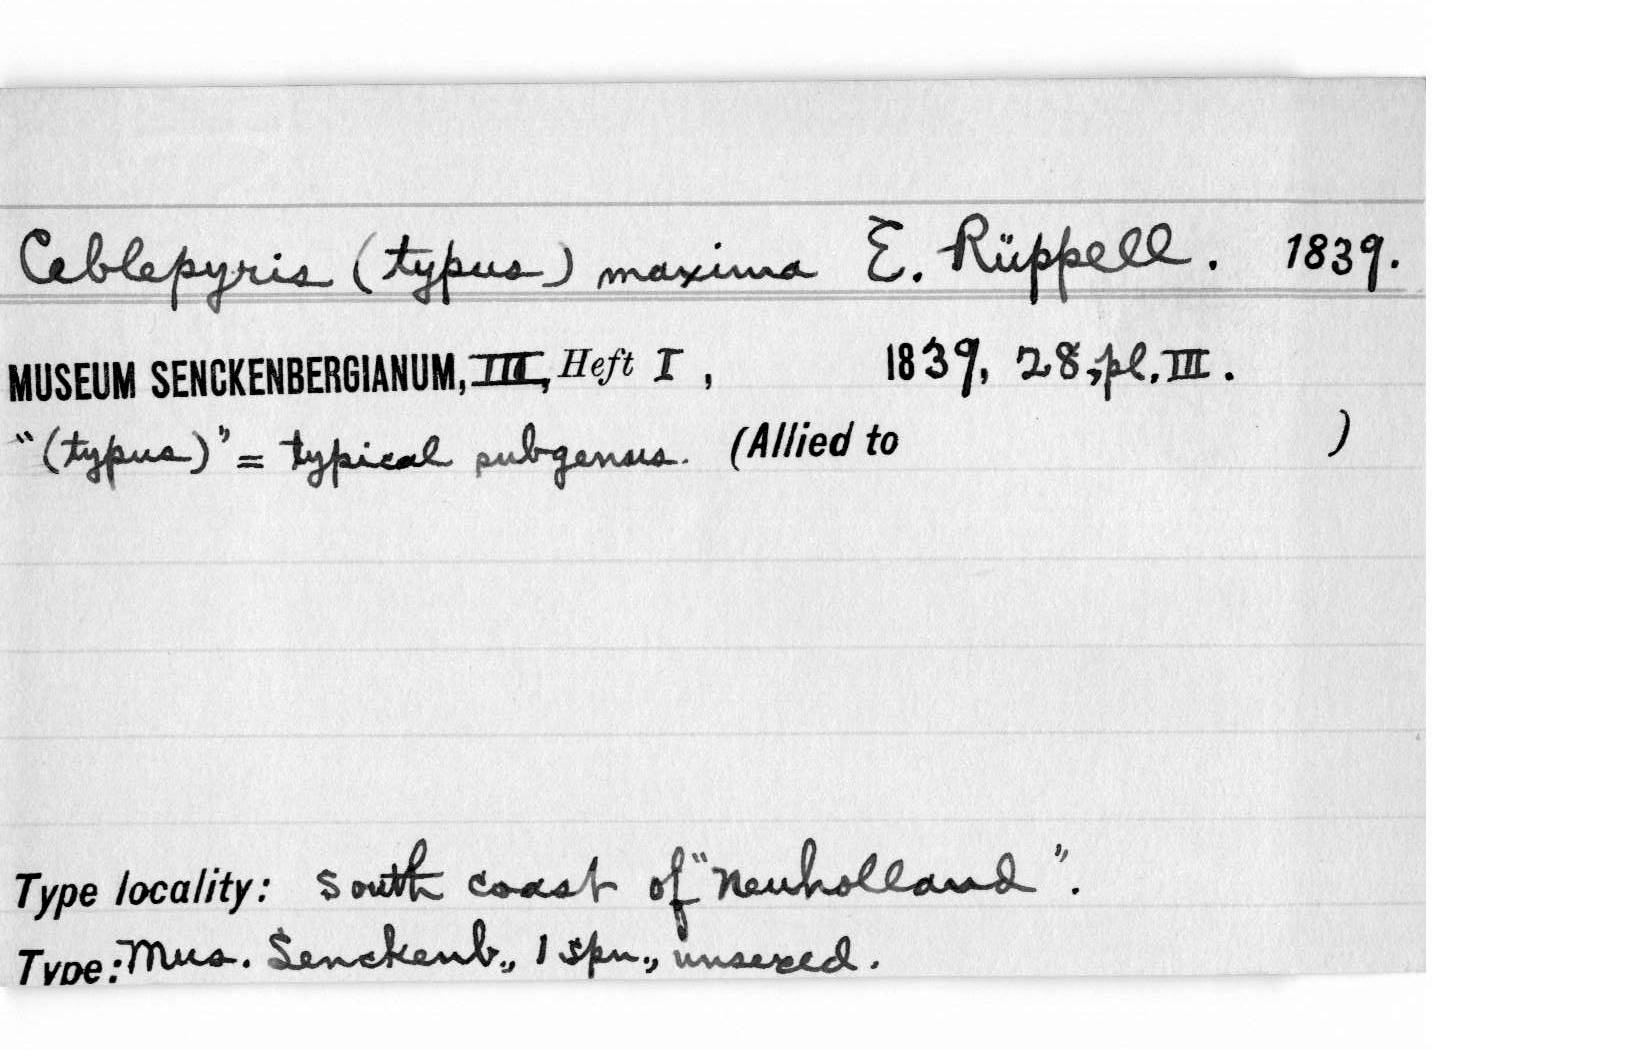 Ceblepyris (typus) maxima E. Rüppell. 1839.
MUSEUM SENCKENBERGIANUM, III, Heft I, 1839, 28, pl. III.
"(typus)" = typical subgenus. (Allied to )
Type locality: South coast of "Neuholland".
Type: Mus. Senckenb., 1 spn., unsexed.